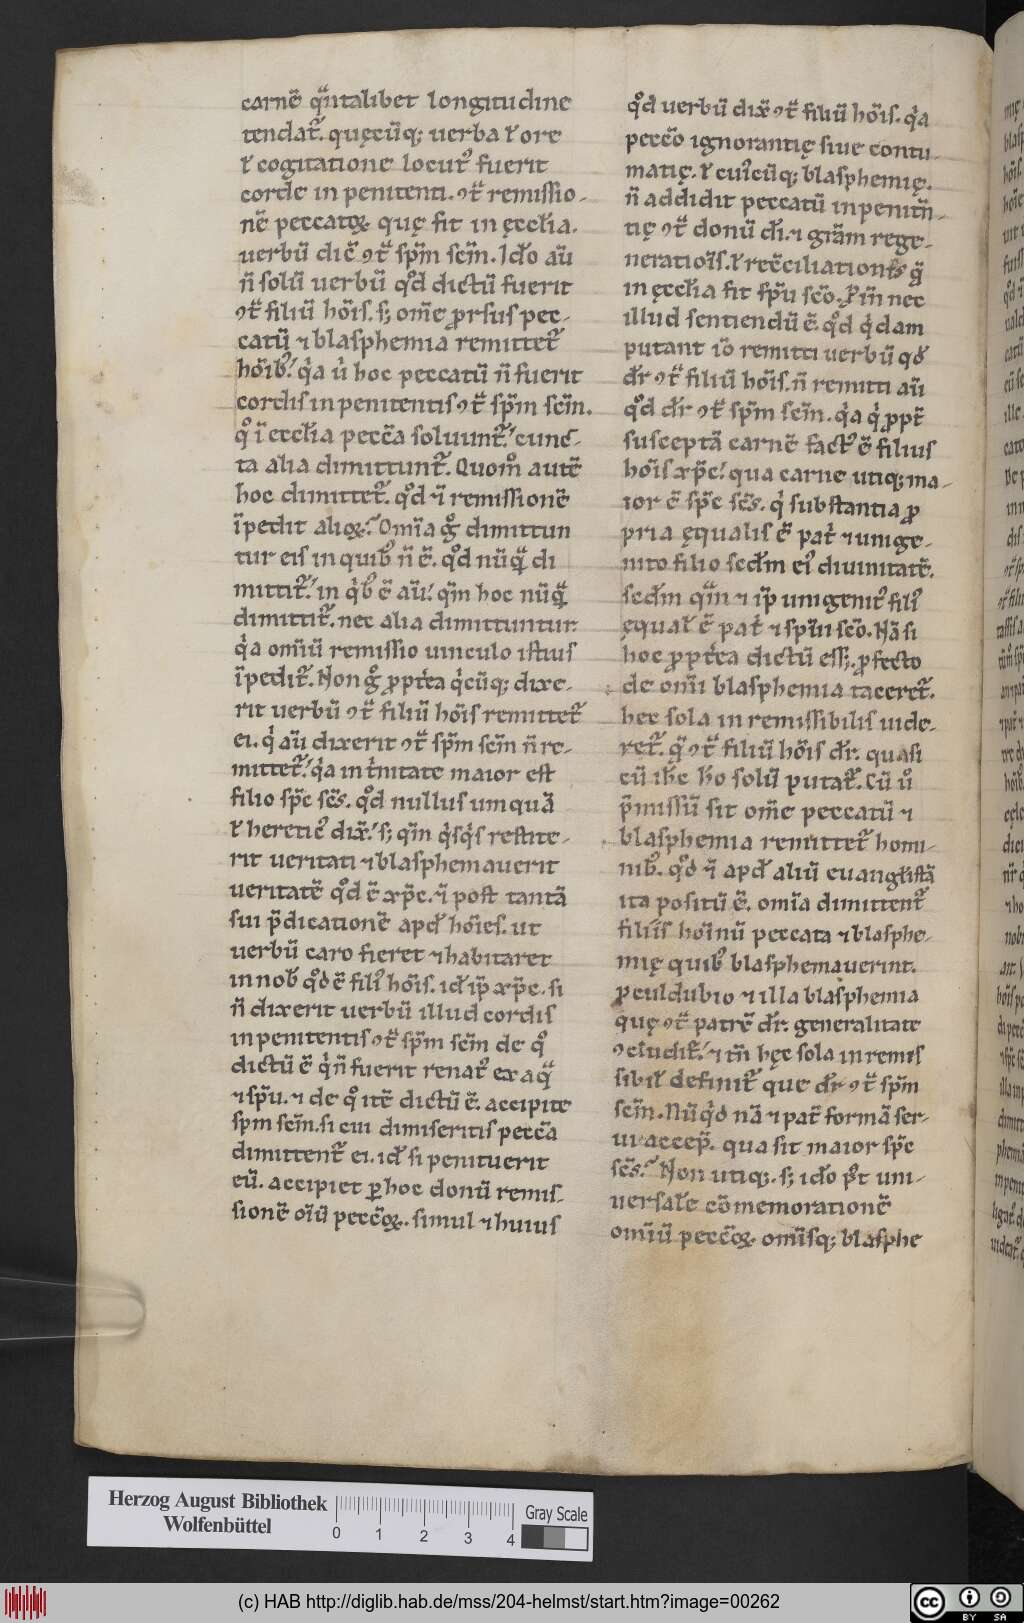 carnē qͣntalibet longitudine
tendat᷑. quęcūq; uerba ɫ ore
ɫ cogitatione locutꝰ fuerit
corde in penitenti. ꝯt̄ remissio-
nē peccatoꝝ quę fit in ęccɫia.
uerbū dic̄ ꝯt̄ sp̄m sc̄m. Ido aū
n̄ solū uerbū qͦd dictū fuerit
ꝯt̄ filiū hōis. s; om̄e prsus pec-
catū ⁊ blasphemia remittet᷑
hōibꝰ. qͥa ů hoc peccatū n̄ fuerit
cordis inpenitentis ꝯt̄ sp̄m sc̄m.
qͦ ī eccɫia pecc̄a soluunt᷑. cunc-
ta alia dimittunt᷑. Quom̊ autē
hoc dimittet᷑. qͦd ⁊ī remissionē
īpedit alioꝝ. Om̄ia gͦ dimittun
tur eis in quibꝰ n̄ ē. qͦd nūqͣ di
mittit᷑. in qͥbꝰ ē aū. qm̄ hoc nūqͣ
dimittit᷑. nec alia dimittuntur.
qͥa om̄iū remissio uinculo istius
īpedit᷑. Non gͦ ꝓpt̄ea qͥcūq; dixe-
rit uerbū ꝯt̄ filiū hōis remittet᷑
ei. qͥ aū dixerit ꝯt̄ sp̄m sc̄m n̄ re-
mittet᷑. qͥa in tͥnitate maior est
filio sp̄c sc̄s. qͦd nullus umquā
ɫ hereticꝰ dix̄. s; qm̄ qͥsqͥs restite-
rit ueritati ⁊ blasphemauerit
ueritatē qͦd ē xp̄c. ⁊ī post tantā
sui p̄dicationē apd̄ hōies. ut
uerbū caro fieret ⁊ habitaret
in nob̄ qͦd ē filiꝰ hōis. id̄ ip̄ xp̄c. si
n̄ dixerit uerbū illud cordis
inpenitentis ꝯt̄ sp̄m sc̄m de qͦ
dictū ē qͥ n̄ fuerit renatꝰ ex aqͣ
⁊ sp̄u. ⁊ de qͦ itē dictū ē. accipite
spm sc̄m. si cui dimiseritis pecc̄a
dimittent᷑ ei. id̄ si penituerit
eū. accipiet ꝑ hoc donū remis-
sionē oīū pecc̄oꝝ. simul ⁊ huius
qͦd uerbū dix̄ ꝯt̄ filiū hōis. qͥa
pecc̄o ignorantię siue contu-
matię. ɫ cuiꝰcūq; blasphemię.
n̄ addidit peccatū inpenitn̄-
tię ꝯt̄ donū dī. ⁊ gr̄am rege-
nerationis. ɫ rec̄ciliationis qͣ
in ęccɫia fit sp̄u sc̄o. Proin nec
illud sentiendū ē. qͦd qͥdam
putant iō remitti uerbū qd̄
dr̄ ꝯt̄ filiū hōis. n̄ remitti aū
qͦd dr̄ ꝯt̄ sp̄m sc̄m. qͥa qͥ ꝓpt̄
susceptā carnē factꝰ ē filius
hōis xp̄c. qua carne utiq; ma-
ior ē sp̄c sc̄s. qͥ substantia ꝓ
pria ęqualis ē pat̄ ⁊ unige-
nito filio sed̄m eiꝰ diuinitatē.
sed̄m qͣm ⁊ ip̄ unigenitꝰ filiꝰ
ęquaɫ ē pat̄ ⁊ spiui sc̄o. Nā si
hoc ꝓpt̄ea dictū ess;. ꝓfecto
de om̄i blasphemia taceret᷑.
hec sola inremissibilis uide-
ret᷑. qͣ ꝯt̄ filiū hōis dr̄. quasi
cū ihc̄ ho solū putat᷑. Cū ů
p̄missū sit om̄e peccatū ⁊
blasphemia remittet᷑ homi-
nibꝰ. qͦd ⁊ī apd̄ aliū euangɫistā
ita positū ē. om̄ia dimittent᷑
filiis hōinū peccata ⁊ blasphe-
mię quibꝰ blasphemauerint.
ꝓculdubio ⁊ illa blasphemia
quę ꝯt̄ patrē dr̄. generalitate
ꝯcludit᷑. ⁊ tn̄ hęc sola inremis
sibiɫ definit᷑ que dr̄ ꝯt̄ sp̄m
sc̄m. Nūqͥd nā ⁊ pat̄ formā ser-
ui accep̄. qua sit maior sp̄c
sc̄s. Non utiq;. s; ido pꝰt uni-
uersale cōmemorationē
om̄iū pecc̄oꝝ. omīsq; blasphe
Herzog August Bibliothek
Wolfenbüttel
0 1 2 3 4
Gray Scale
(c) HAB http://diglib.hab.de/mss/204-helmst/start.htm?image=00262
cc BY SA